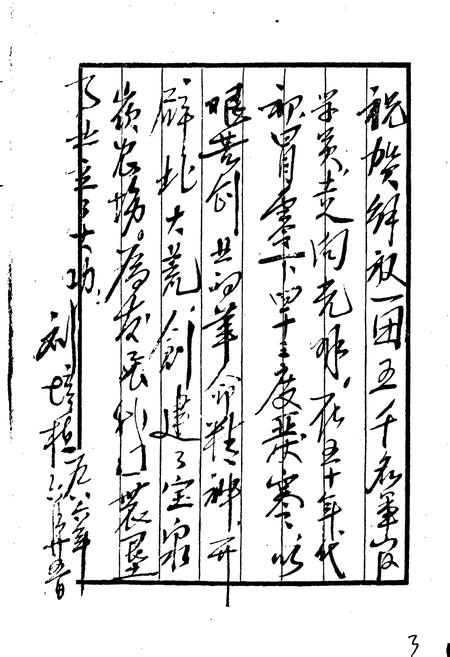 祝贺解放一团五千名军官
学员，走向光明，在五十年代
初冒零下四十三度严寒，以
艰苦创业的革命精神，开
辟北大荒，创建了宝泉
岭农场。为发展我国农垦
事业立了大功。
刘培植
一九八六年
六月廿五日
3